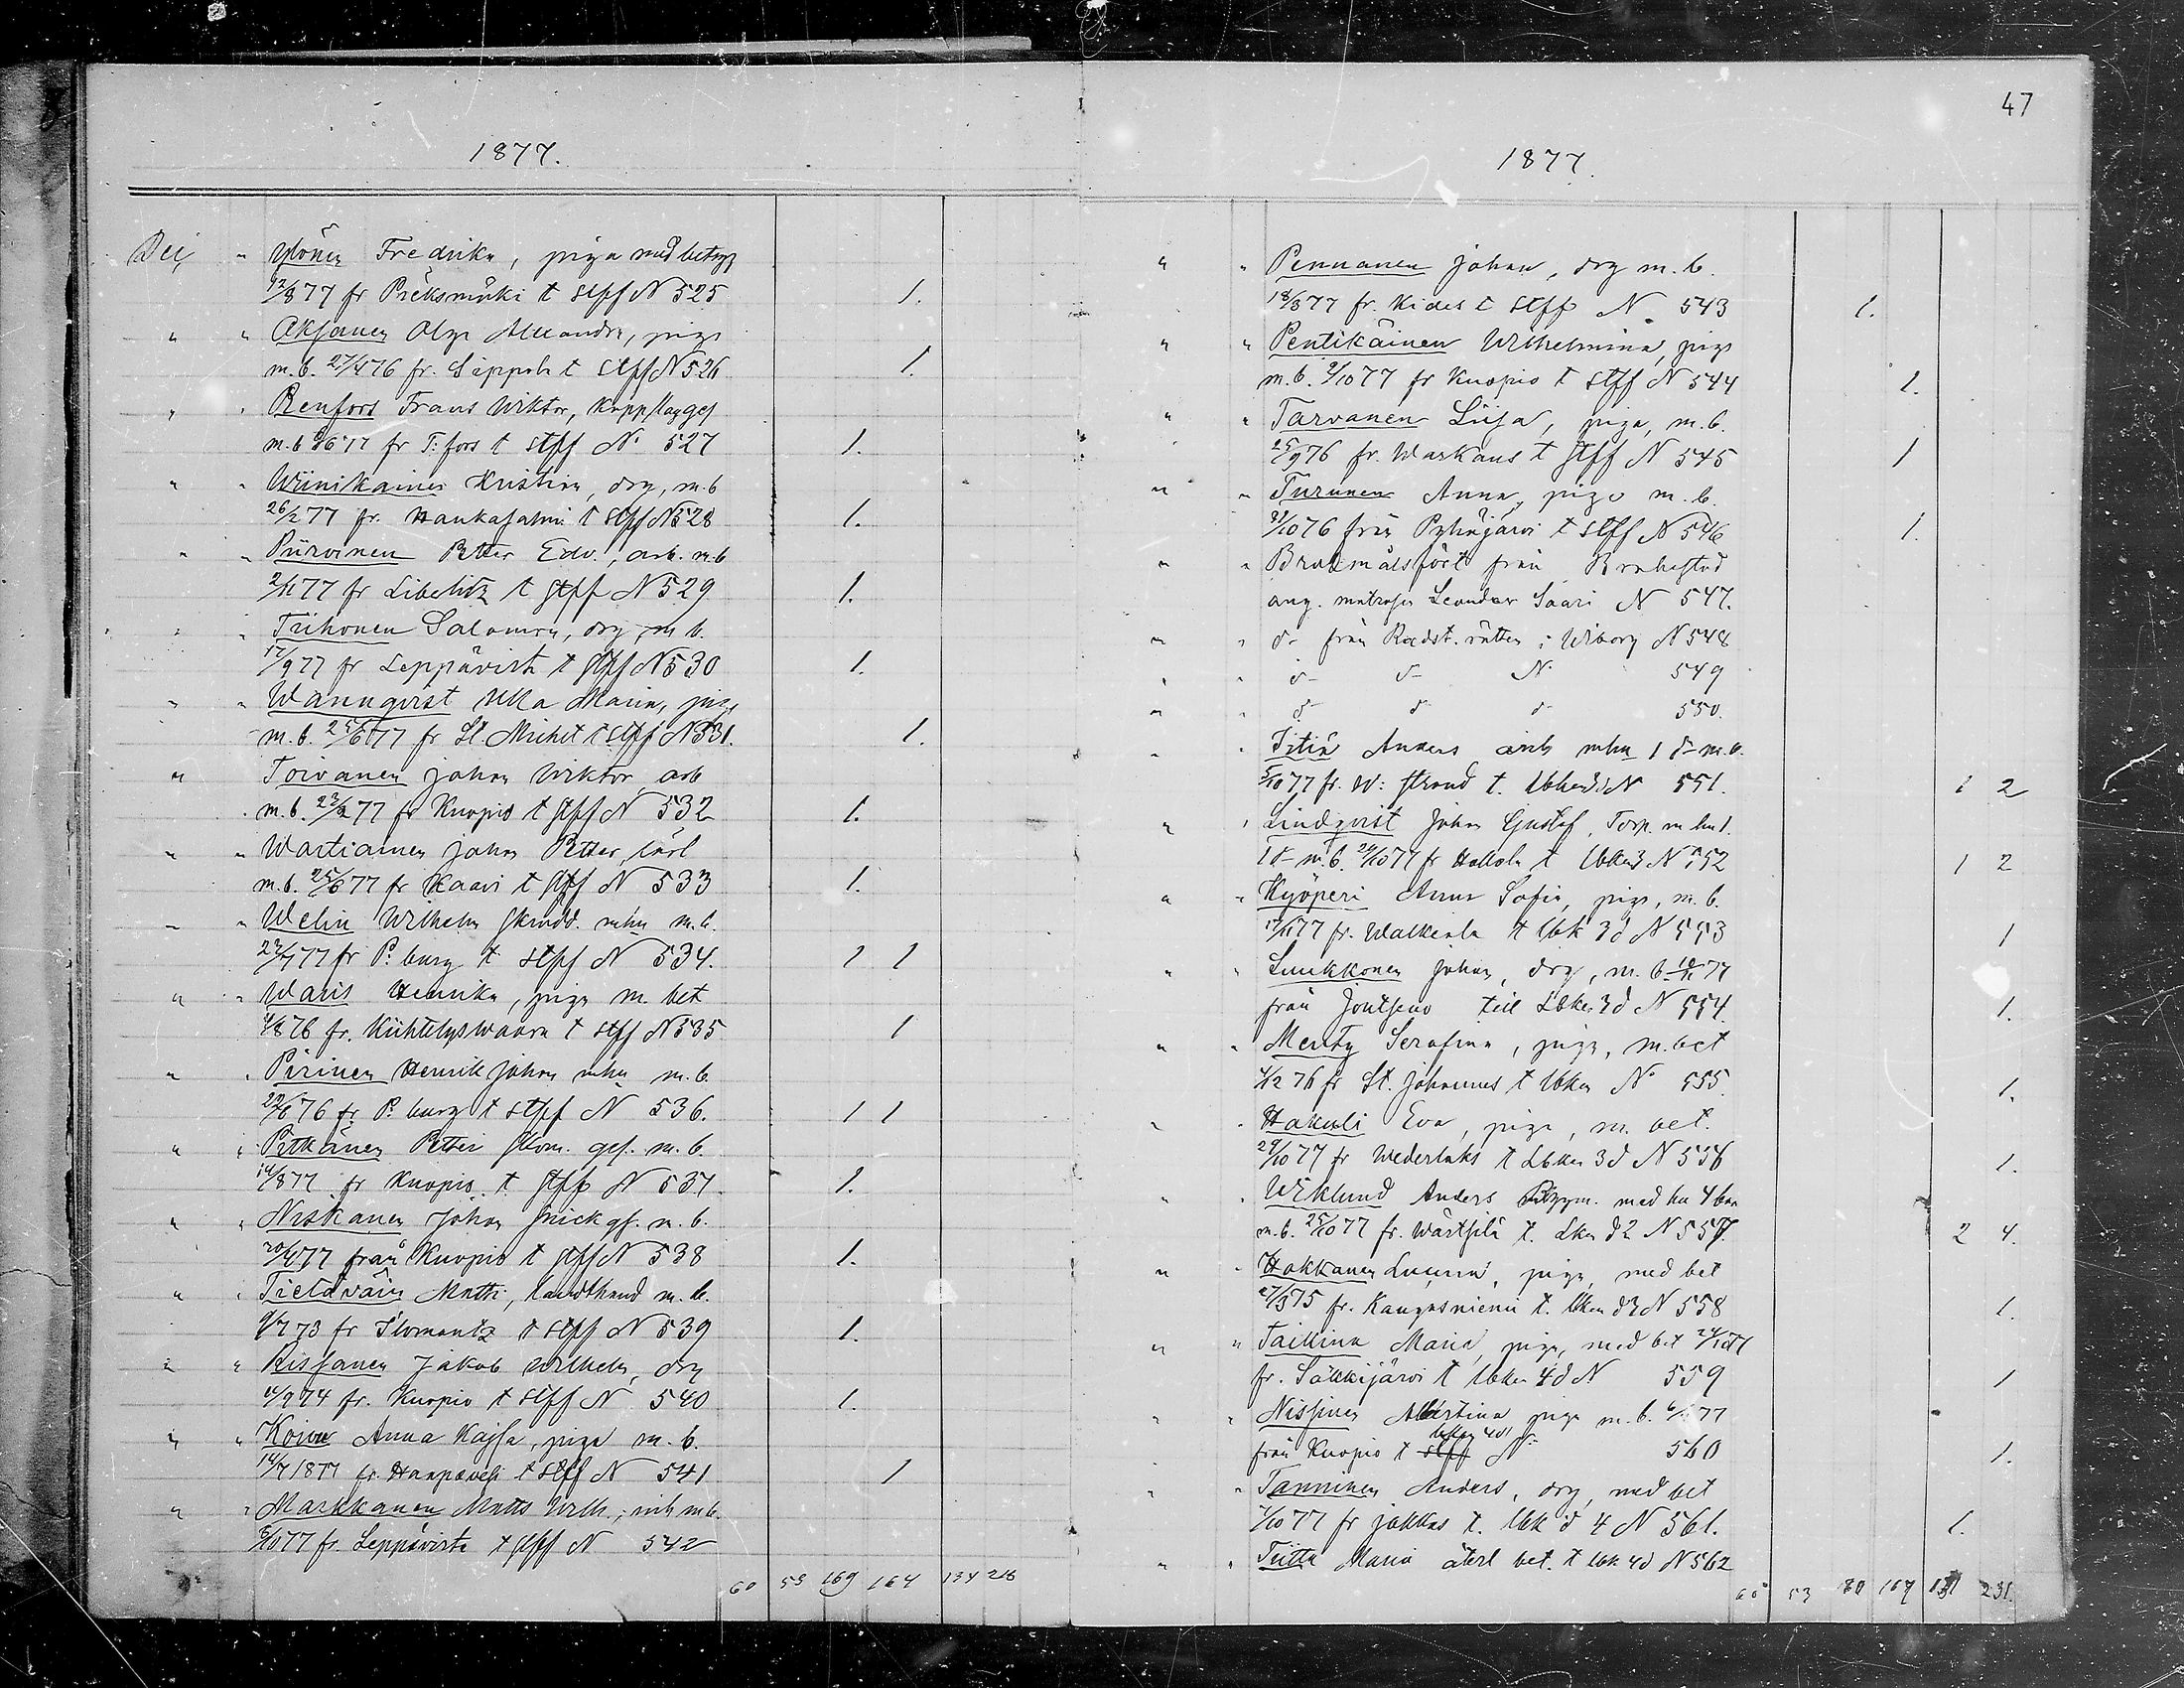 47
1877.
Dec " Ylönen Fredrika, piga med betyg
12/8 77 fr Präksmäki t stpf N 525 1.
" " Aksanen Olga Alexandra, piga
m.b. 27/4 76 fr. Sippola t stpf N 526 1.
" " Renfors Frans Wiktor, kopp slag ges
m.b 9/6 77 fr T:fors t stpf No 527 1.
" " Wiinikainen Kristina, drg, m.b
26/2 77 fr. Hankasalmi t stpf N 528 1.
" " Piirainen Petter Edv., arb. m.b
2/11 77 fr Libelitz t stpf N 529 1.
" " Tiihonen Salomon, drg, m b.
17/9 77 fr Leppävirta t stpf N 530 1.
" " Wannqvist Ulla Maria, piga
m.b. 25/6 77 fr St. Michel t stpf N 531. 1.
" Toivanen Johan Wiktor, arb
m.b. 23/2 77 fr Kuopio t stpf N 532 1.
" " Wartiainen Johan Petter, lärl
m.b. 25/6 77 fr Kaavi t stpf N 533 1.
" " Welin Wilhelm skrädd. mhu m.b.
23/7 77 fr P:burg t stpf N 534. 1 1
" " Waris Henrika, piga m. bet
4/8 76 fr. Kiihtelyswaara t stpf N 535 1
" " Pirinen Henrik Johan mhu m.b.
29/6 76 fr P:burg t stpf N 536. 1 1
" " Pitkänen Petter skom. ges. m.b.
14/8 77 fr Kuopio t stpf N 537. 1.
" " Niskanen Johan snick gs. m.b.
20/4 77 från Kuopio t stpf N 538 1.
" " Tietäväin Matti, landthand m.b.
9/7 73 fr Ilomantz t stpf N 539 1.
" " Rissanen Jakob Wilhelm, drg
14/9 74 fr. Kuopio t stpf N 540 1.
" " Koivu Anna Kajsa, piga m.b.
14/7 1877 fr. Haapavesi t stpf N 541 1
" " Markkanen Matts Wilh., inh m.b.
5/10 77 fr. Leppävirta t stpf N 542
60 53 169 164 134 216
1877.
" " Pennanen Johan, drg m.b.
18/8 77 fr. Kides t stpf N. 543 1.
" " Pentikäinen Wilhelmina, piga
m.b. 9/10 77 fr Kuopio t stpf N 544 1.
" " Tarvanen Liisa, piga, m.b.
25/9 76 fr. Warkaus t stpf N 545 1
" " Turunen Anna, piga m.b.
31/10 76 från Pyhäjärvi t stpf N 546 1.
" " Brottmålsfört från Brahestad
ang. matrosen Leander Saari N 547.
" " d- från Rådst.rätten i Wiborg N 548
" " d- d- N 549
" " d- d- d- 550.
" " Titiä Anders inh mhu 1 d- m.b.
5/10 77 fr. W:strand t. lbken 3 N 551. 1 2
" " Lindqvist Johan Gustaf, Torp. m hu 1.
1 d- m.b. 29/10 77 fr Hollola t lbken 3 N 552 1 2
" " Kyöperi Anna Sofia, piga, m.b.
17/11 77 fr. Walkeala t lbk 3 d N 553 1
" " Luukkonen Johan, drg, m.b. 10/11 77
från Joutseno till Lbken 3 d N 554 1.
" " Menty Serafina, piga, m.bet
4/12 76 fr St. Johannes t lbken No 555. 1.
" " Hakuli Eva, piga, m. bet.
29/10 77 fr Wederlaks t Lbken 3 d N 556 1.
" " Wiklund Anders med hu 4 barn
m.b. 25/10 77 fr. Wärtsilä t. Lken d 2 N 557. 2 4.
" " Hokkanen piga, med bet
27/3 75 fr. Kangasniemi t. lken d 3 N 558 1.
" " Taillina Maria, piga, med bet 24/11 77
fr. Säkkijärvi t lbken 4 d N 559 1
" " Nissinen Albertina piga m.b. 6/11 77
från Kuopio t stpf lbken 4 d N: 560 1.
" " Tanninen Anders, drg, med bet
7/10 77 fr Jokkas t. lbk d 4 N 561. 1.
" " Tiitta Maria återl bet. t lbk 4 d N 562
60 53 70 167 131 231.